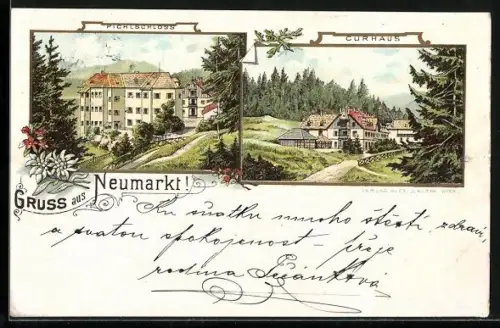 PICHLSCHLOSS
CURHAUS
GRUSS aus Neumarkt!
VERLAG
Ku svátku mnoho štěstí, zdraví,
a svatou spokojenost — přeje
rodina